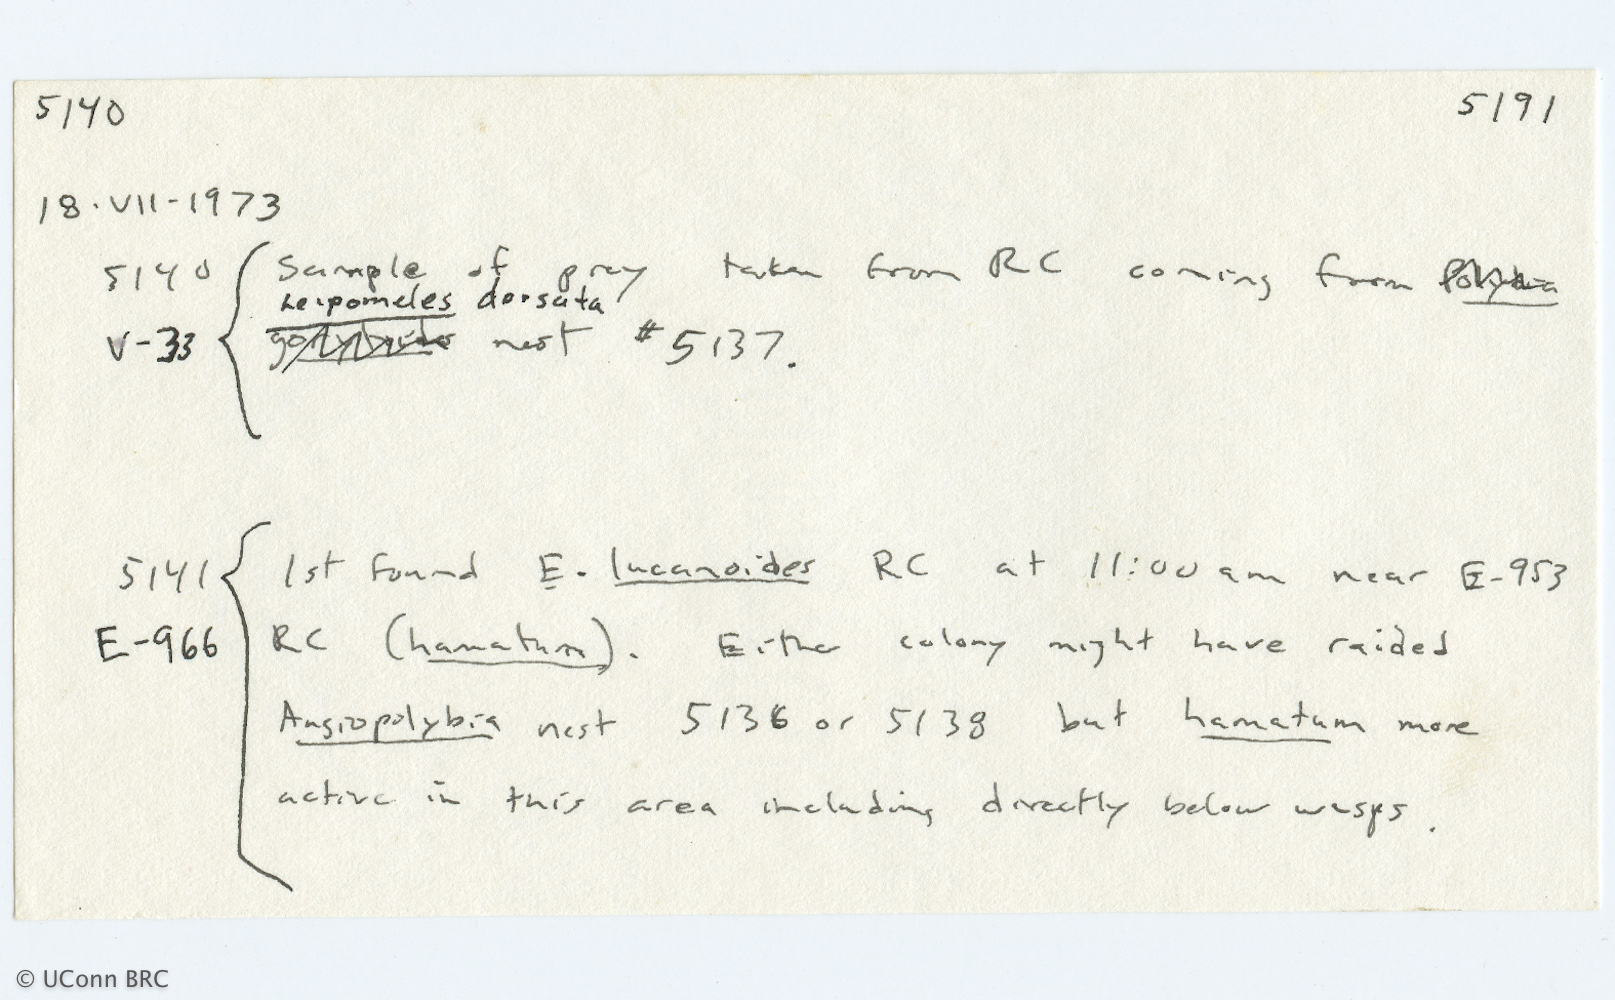 5140 5191
18.VII-1973
5140 Sample of prey taken from RC coming from Polybia
Leipomeles dorsata
V-33 nest #5137.
5141 1st found E. lucanoides RC at 11:00 am near E-953
E-966 RC (hamatum). Either colony might have raided
Angiopolybia nest 5136 or 5138 but hamatum more
active in this area including directly below wasps.
© UConn BRC